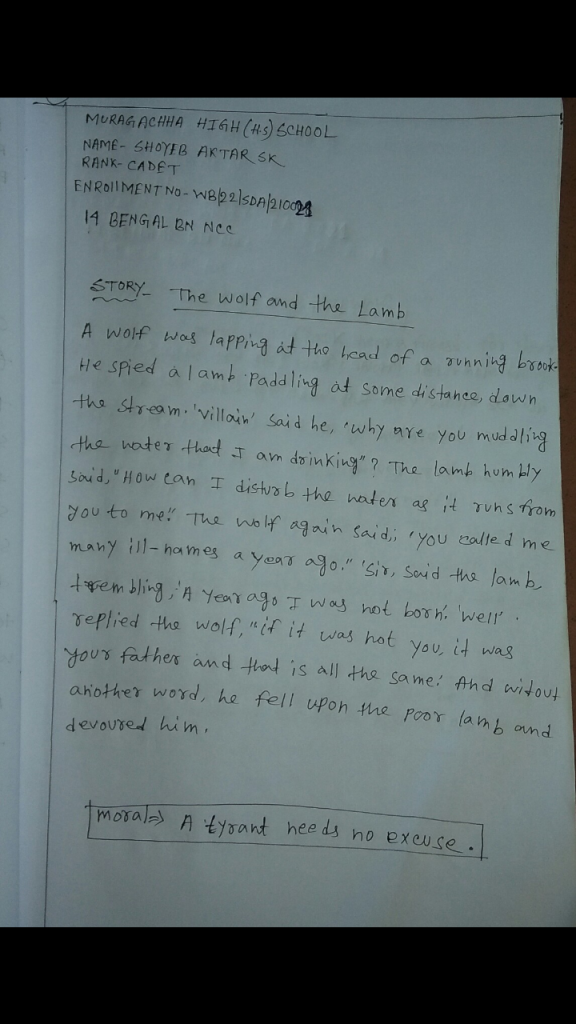 MURAGACHHA HIGH (HS) SCHOOL
NAME- SHOYEB AKTAR SK
RANK- CADET
ENROllMENT NO- WB/22/SDA/210021
14 BENGAL BN NCC
STORY- The Wolf and the Lamb
A wolf was lapping at the head of a running brook.
He spied a lamb paddling at some distance, down
the stream. 'villain' said he, 'why are you muddling
the water that I am drinking"? The lamb humbly
said, "How can I disturb the water as it runs from
you to me." The wolf again said; 'you called me
many ill-names a year ago." 'Sir, said the lamb,
trembling, 'A Year ago I was not born'. 'Well'.
replied the wolf, "if it was not you, it was
your father and that is all the same.' And witout
another word, he fell upon the poor lamb and
devoured him.
moral⇒ A tyrant needs no excuse.